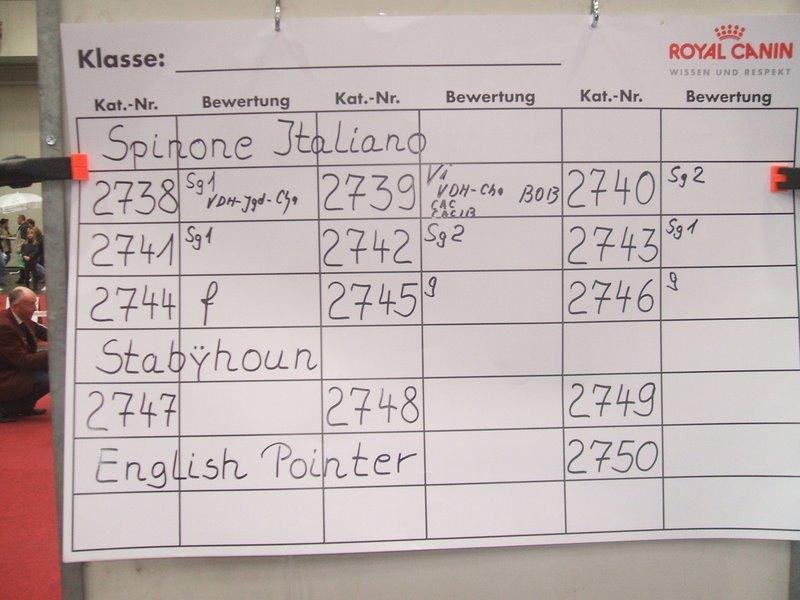 Klasse:
ROYAL CANIN
WISSEN UND RESPEKT
Kat.-Nr. Bewertung Kat.-Nr. Bewertung Kat.-Nr. Bewertung
Spinone Italiano
2738 Sg1 VDH-Jgd-Ch. 2739 V1 VDH-Ch. CAC CACIB BOB 2740 Sg2
2741 Sg1 2742 Sg2 2743 Sg1
2744 f 2745 g 2746 g
Stabÿhoun
2747 2748 2749
English Pointer 2750